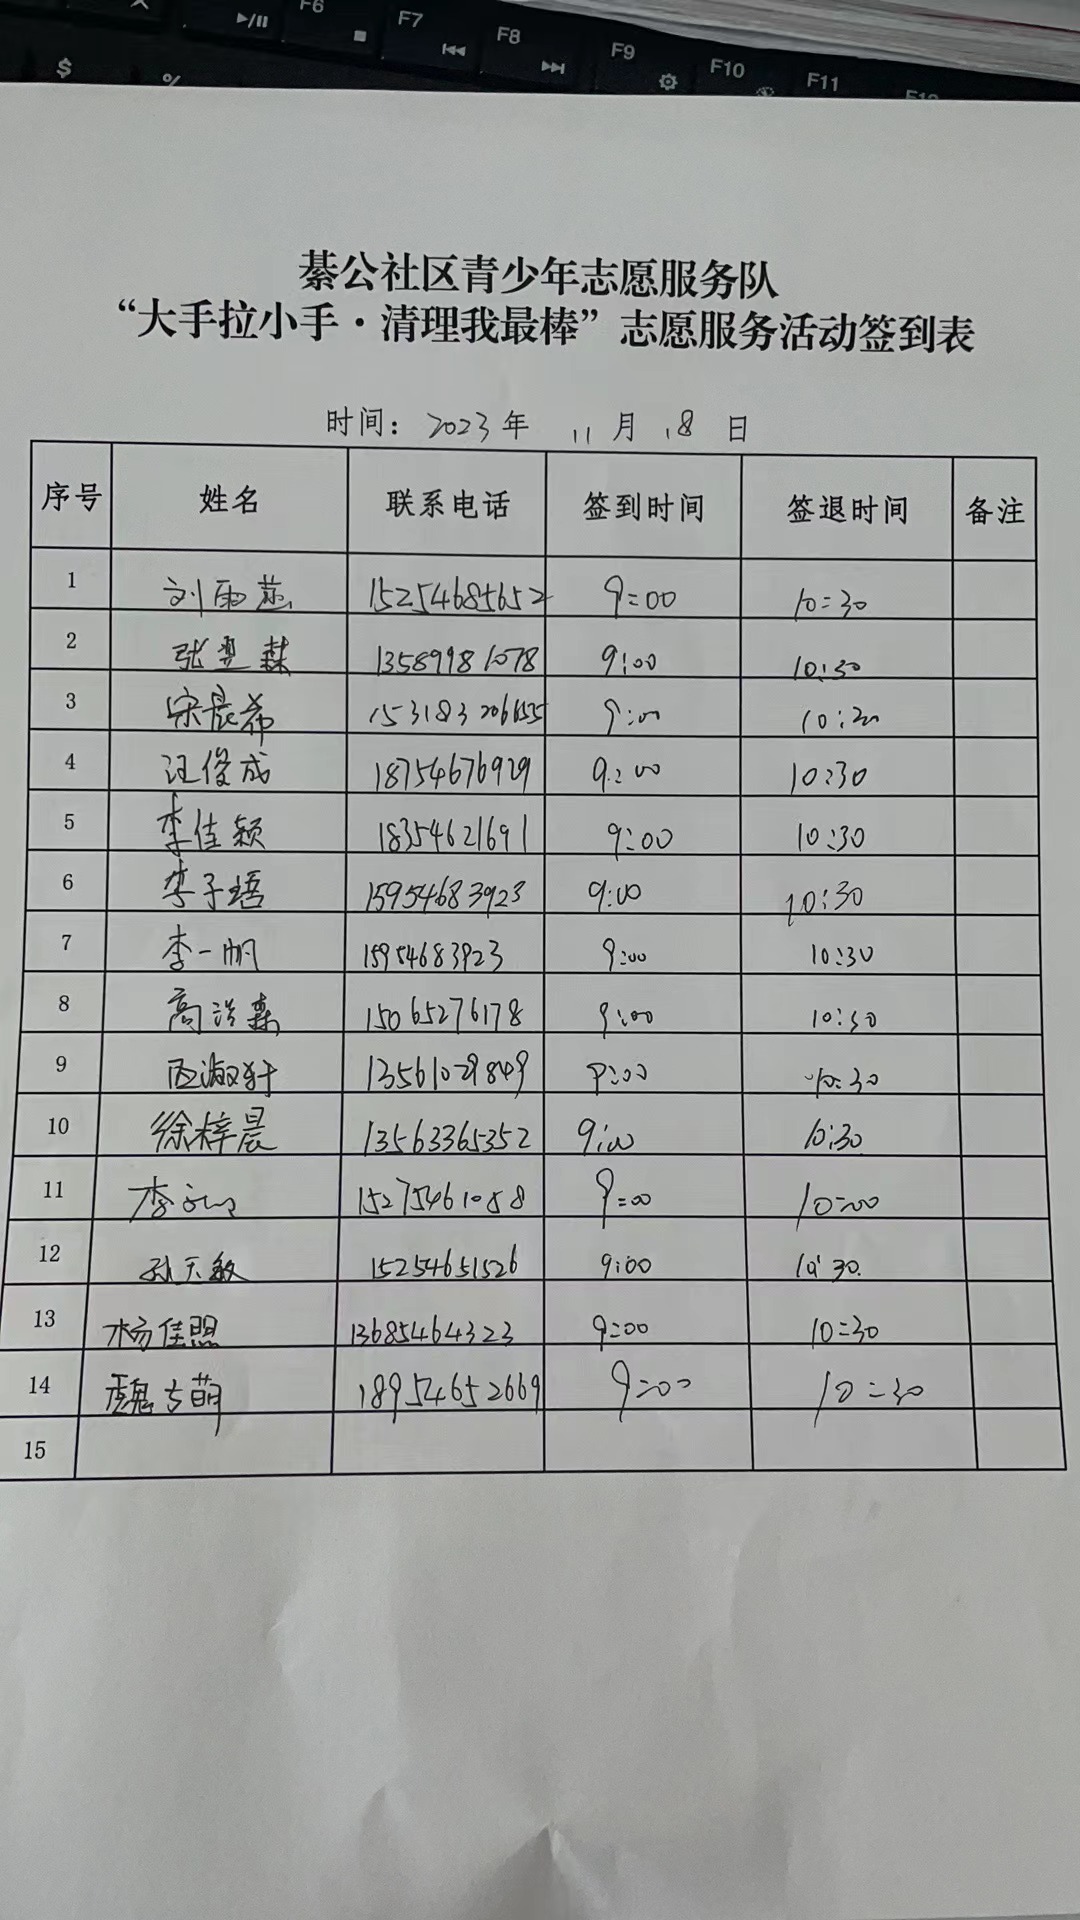 $ % F6 F7 F8 F9 F10 F11 F12
綦公社区青少年志愿服务队
“大手拉小手·清理我最棒”志愿服务活动签到表
时间: 2023年 11月 18日
序号 姓名 联系电话 签到时间 签退时间 备注
1 刘雨 15254685652 9:00 10:30
2 张 13589981078 9:00 10:30
3 宋晨希 9:00
4 汪俊成 18754676929 9:00 10:30
5 李佳颖 18354621691 9:00 10:30
6 李子 15954683923 9:00 10:30
7 李一帆 15954683923 9:00 10:30
8 高 森 15065276178 9:00 10:30
9 淑 13561029849 9:00 10:30
10 徐梓晨 13563365352 9:00 10:30
11 李 15275461088 9:00 10:00
12 孙天敏 15254651526 9:00 10:30.
13 杨佳盟 13685464323 9:00 10:30
14 魏 萌 18954652669 9:00 10:30
15